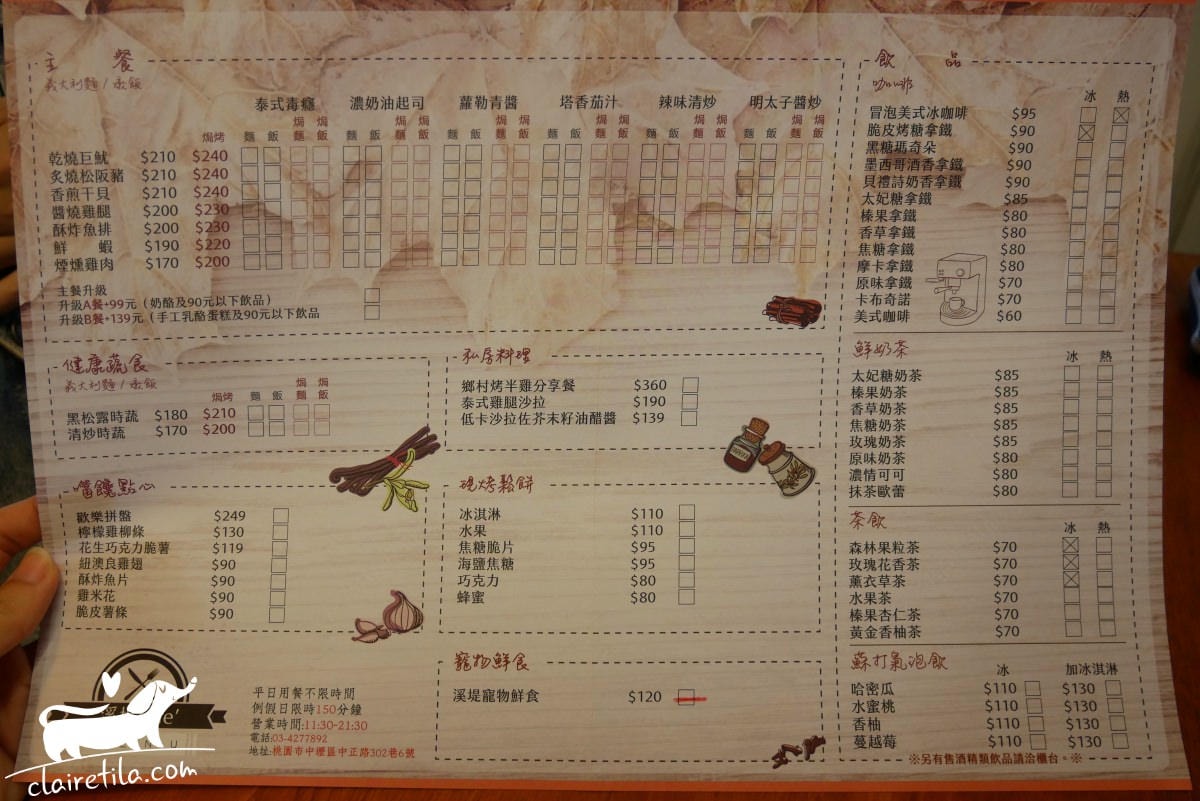 主 餐
義大利麵 / 燉飯
泰式毒癮 濃奶油起司 蘿勒青醬 塔香茄汁 辣味清炒 明太子醬炒
焗烤 麵 飯 焗麵 焗飯 麵 飯 焗麵 焗飯 麵 飯 焗麵 焗飯 麵 飯 焗麵 焗飯 麵 飯 焗麵 焗飯 麵 飯 焗麵 焗飯
乾燒巨魷 $210 $240
炙燒松阪豬 $210 $240
香煎干貝 $210 $240
醬燒雞腿 $200 $230
酥炸魚排 $200 $230
鮮 蝦 $190 $220
煙燻雞肉 $170 $200
主餐升級
升級A餐+99元（奶酪及90元以下飲品）
升級B餐+139元（手工乳酪蛋糕及90元以下飲品
健康蔬食
義大利麵 / 燉飯
焗烤 麵 飯 焗麵 焗飯
黑松露時蔬 $180 $210
清炒時蔬 $170 $200
私房料理
鄉村烤半雞分享餐 $360
泰式雞腿沙拉 $190
低卡沙拉佐芥末籽油醋醬 $139
嘴饞點心
歡樂拼盤 $249
檸檬雞柳條 $130
花生巧克力脆薯 $119
紐澳良雞翅 $90
酥炸魚片 $90
雞米花 $90
脆皮薯條 $90
現烤鬆餅
冰淇淋 $110
水果 $110
焦糖脆片 $95
海鹽焦糖 $95
巧克力 $80
蜂蜜 $80
寵物鮮食
溪堤寵物鮮食 $120
平日用餐不限時間
例假日限時150分鐘
營業時間:11:30-21:30
電話:03-4277892
地址:桃園市中壢區中正路302巷6號
clairetila.com
飲 品
咖啡
冰 熱
冒泡美式冰咖啡 $95
脆皮烤糖拿鐵 $90
黑糖瑪奇朵 $90
墨西哥酒香拿鐵 $90
貝禮詩奶香拿鐵 $90
太妃糖拿鐵 $85
榛果拿鐵 $80
香草拿鐵 $80
焦糖拿鐵 $80
摩卡拿鐵 $80
原味拿鐵 $70
卡布奇諾 $70
美式咖啡 $60
鮮奶茶
冰 熱
太妃糖奶茶 $85
榛果奶茶 $85
香草奶茶 $85
焦糖奶茶 $85
玫瑰奶茶 $85
原味奶茶 $80
濃情可可 $80
抹茶歐蕾 $80
茶飲
冰 熱
森林果粒茶 $70
玫瑰花香茶 $70
薰衣草茶 $70
水果茶 $70
榛果杏仁茶 $70
黃金香柚茶 $70
蘇打氣泡飲
冰 加冰淇淋
哈密瓜 $110 $130
水蜜桃 $110 $130
香柚 $110 $130
蔓越莓 $110 $130
※另有售酒精類飲品請洽櫃台。※